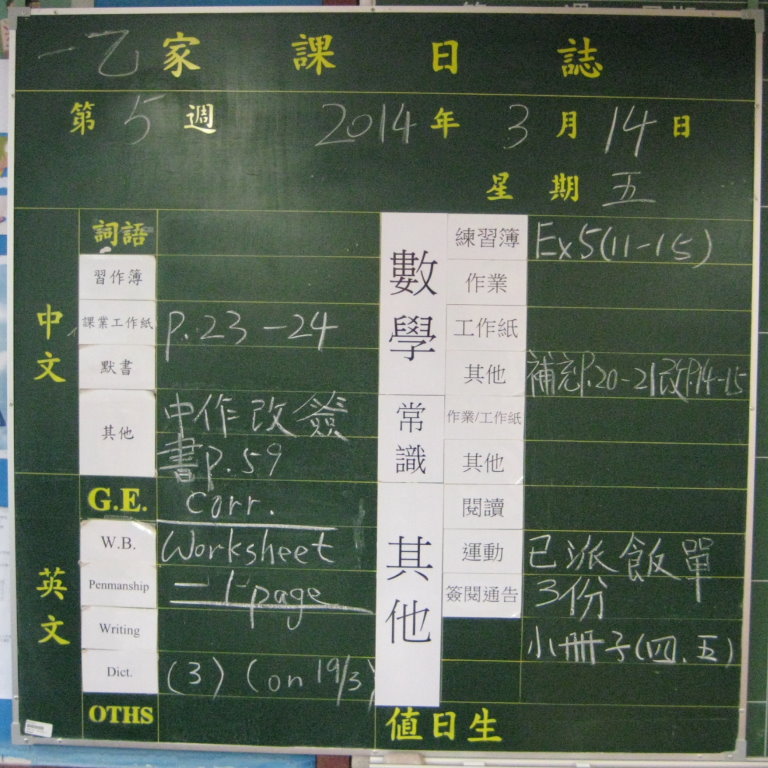 一乙家課日誌
第5週 2014年3月14日
星期五
中文
詞語
習作簿
課業工作紙 p.23-24
默書
其他 中作改簽
書p.59
英文
G.E. corr.
W.B. Worksheet
Penmanship 一1 page
Writing
Dict. (3) (on 19/3)
OTHS
數學
練習簿 Ex5(11-15)
作業
工作紙
其他 補充P.20-21改P.14-15
常識
作業/工作紙
其他
其他
閱讀
運動 已派飯單
簽閱通告 3份
小冊子(四、五)
值日生